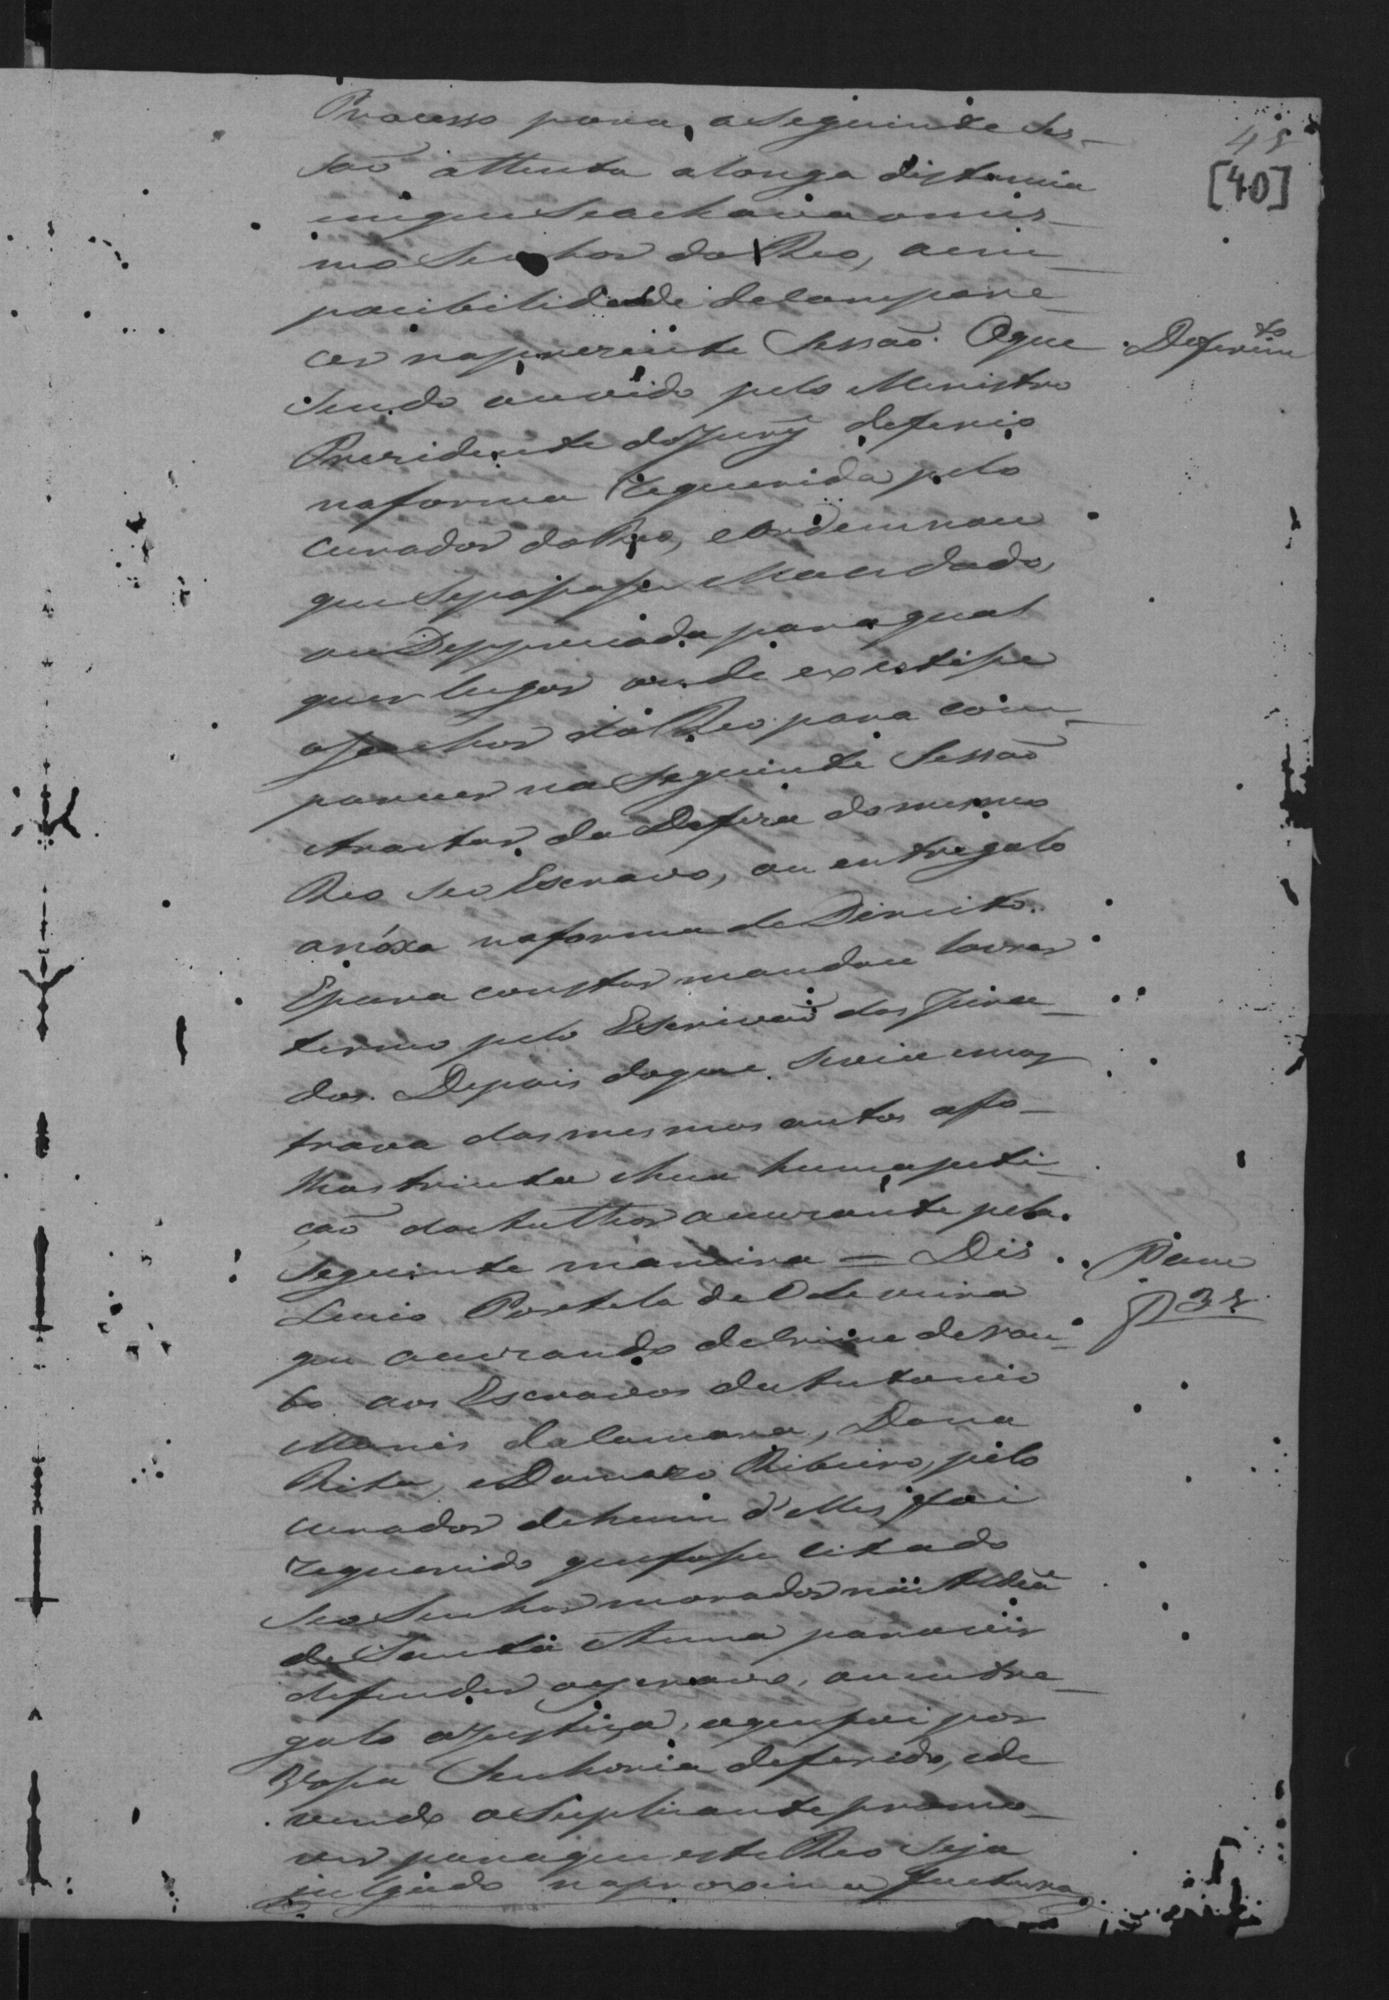 45
[40]
Processo para, a Seguinte Ses-
são attenta a longa distancia
em que Se achava o mes-
mo Senhor do Reo, a em-
pocibilidade de Compare-
cer na prezente Sessão. O que
Deferim.to
Sendo ouvido pelo Ministro
Prezidente do Jury deferio
na forma requerida pelo
Curador do Reo, e Ordennou
que Se passase Mandado,
ou Deppreciada para qual
quer lugar onde existise
o Senhor do Reo para com-
parecer na Seguinte Sessão
atractar da Defeza do mesmo
Reo Seo Escravo, ou entregalo
a nóxa na forma de Direito.
E para constar mandou lavrar
termo pelo Escrivaõ dos Jura-
dos. Depois do que Se via e mos
trava dos mesmos autos a fo-
lhas trinta e hua huma peti-
çaõ do Author accuzante pela
Seguinte maneira = Dis
Luis Portela de Oliveira
que accuzando de Crime de rou-
bo aos Escravos de Antonio
Manis da Camara, Dona
Rita, e Damazo Ribeiro, pelo
curador de hum d'elles foi
requerido que fosse Citado
Seo Senhor morador na Aldêa
de Santa Anna para vir
defender o escravo, ou entre-
galo a Justiça, o que foi por
Vossa Senhoria deferido, e de
vendo o Suplicante promo-
ver para que este Reo Seja
julgado na proxima fuctura